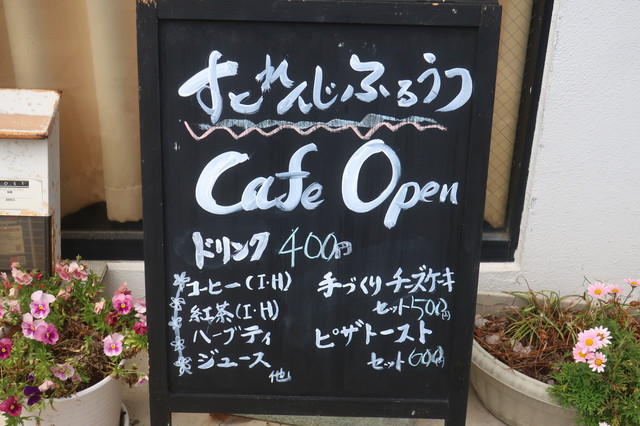 すとれんじふるうつ
Cafe Open
ドリンク 400円
コーヒー(I・H)
紅茶(I・H)
ハーブティ
ジュース
他
手づくりチーズケーキ
セット500円
ピザトースト
セット600円